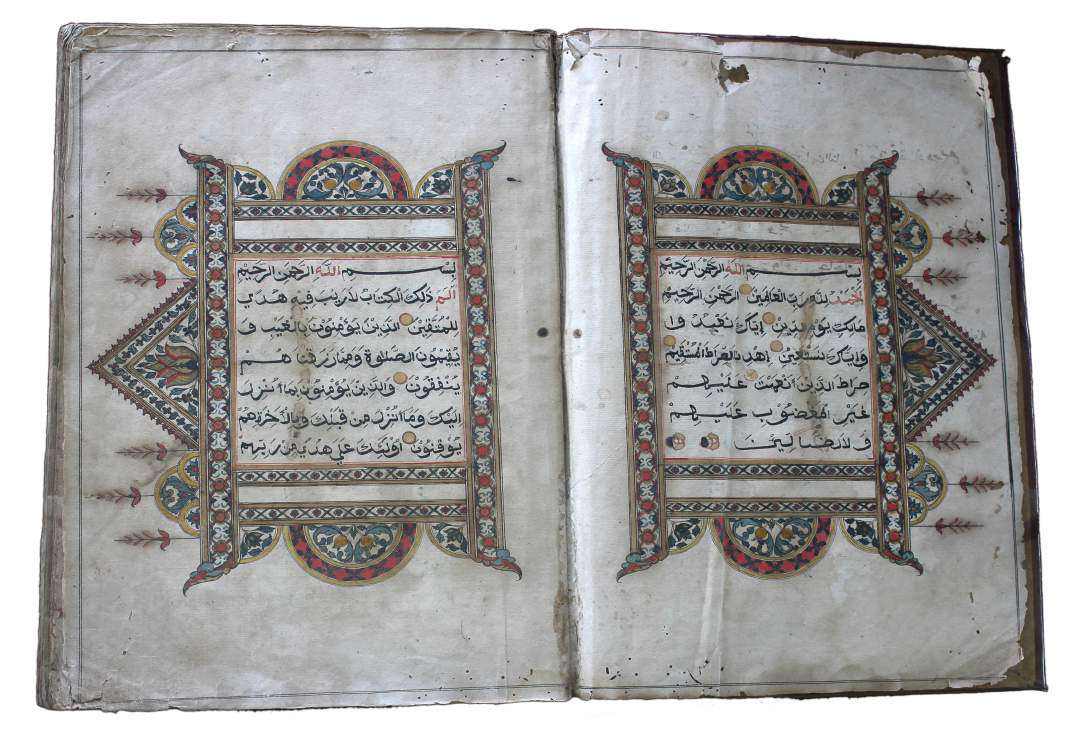 بسم الله الرحمن الرحيم
الحمد لله رب العالمين الرحمن الرحيم
مالك يوم الدين إياك نعبد وا
وإياك نستعين إهدنا الصراط المستقيم
صراط الذين أنعمت عليهم
غير المغضوب عليهم
ولا الضالين
بسم الله الرحمن الرحيم
الم ذلك الكتاب لا ريب فيه هدي
للمتقين الذين يؤمنون بالغيب و
يقيمون الصلوة ومما رزقنا هم
ينفقون والذين يؤمنون بما أنزل
إليك وما أنزل من قبلك وبالآخرة هم
يوقنون أولئك علي هدي من ربهم